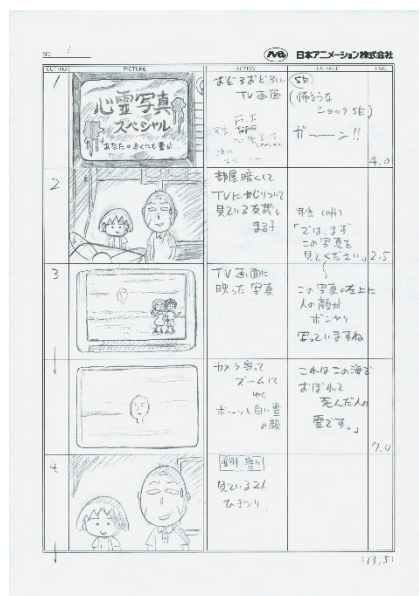 NO. 1
日本アニメーション株式会社
CUT NO PICTURE ACTION
1
心霊写真
スペシャル
あなたの近くにも霊が…
おどろおどろしい
TV画面
SE
(怖そうな
ショックSE)
ガーーン!!
4.0
2
部屋暗くして
TVにかじりついて
見ている友蔵と
まる子
「では、まず
この写真を
見てください」
2.5
3
TV画面に
映った写真
この写真の左上に
人の顔が
ボンヤリ
写っていますね
カメラ寄って
ズームして
ゆく
ボーッと白い霊
の顔
これはこの海で
おぼれて
死んだ人の
霊です。」
7.0
4
見ている2人
ひきつり
(13.5)